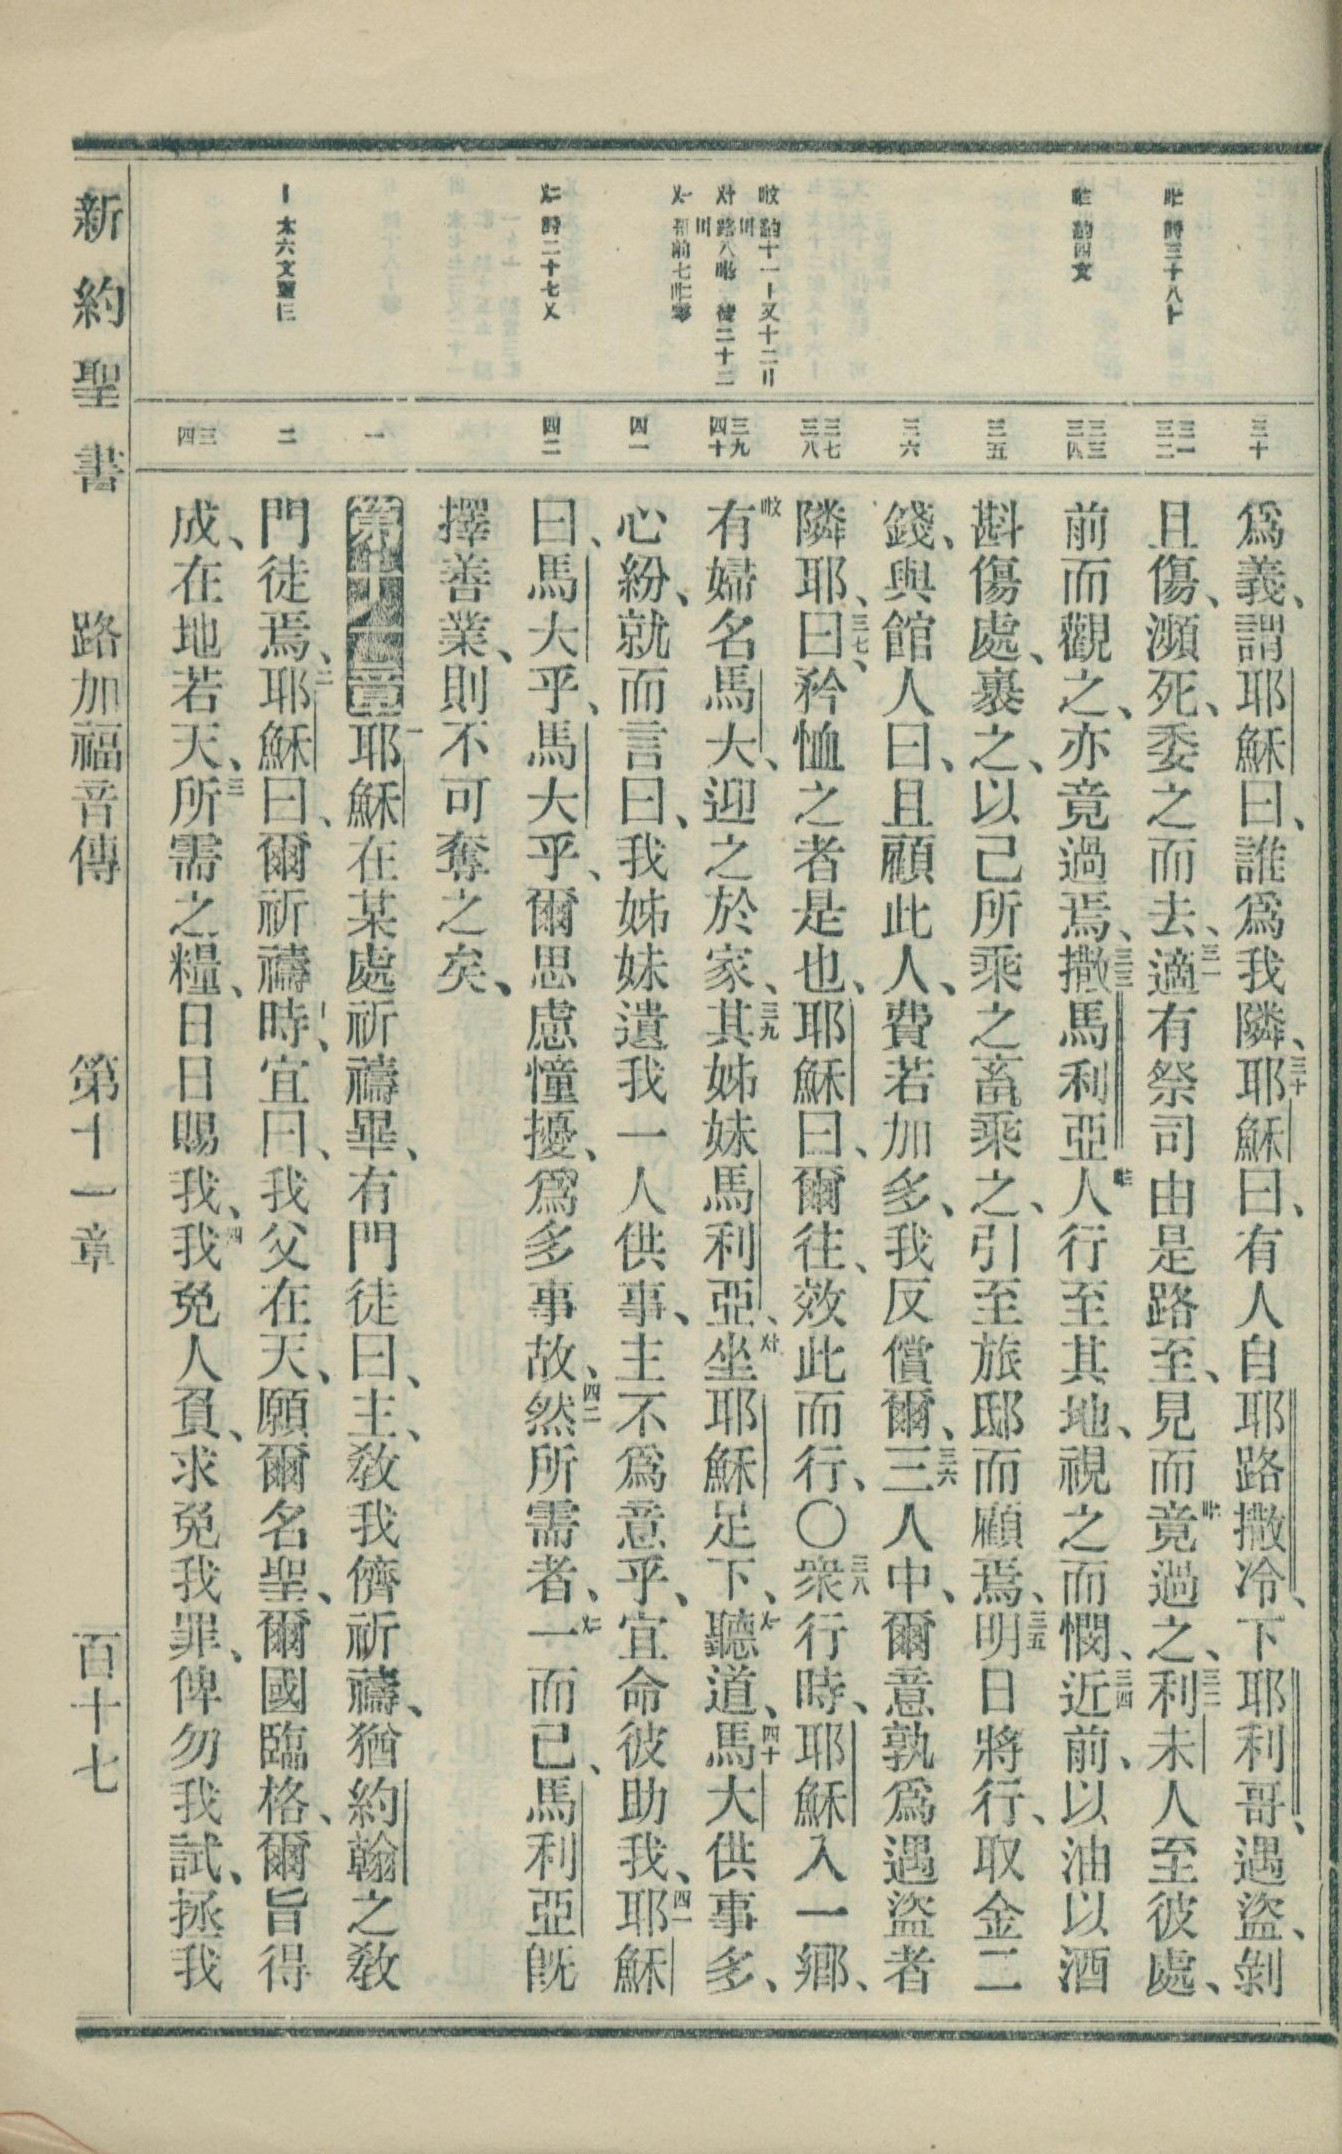 爲義、謂耶穌曰、誰爲我隣、三十耶穌曰、有人自耶路撒冷、下耶利哥、遇盜、剝
且傷、瀕死、委之而去、三一適有祭司由是路至、見而竟過之、三二利未人至彼處、
前而觀之、亦竟過焉、三三撒馬利亞人行至其地、視之而憫、三四近前、以油以酒
斟傷處、裹之、以己所乘之畜乘之、引至旅邸而顧焉、三五明日將行、取金二
錢、與館人曰、且顧此人、費若加多、我反償爾、三六三人中、爾意孰爲遇盜者
隣耶、三七曰、矜恤之者是也、耶穌曰、爾往、效此而行、〇三八衆行時、耶穌入一鄉、
有婦名馬大、迎之於家、三九其姊妹馬利亞、坐耶穌足下、聽道、四十馬大供事多、
心紛、就而言曰、我姊妹遺我一人供事、主不爲意乎、宜命彼助我、四一耶穌
曰、馬大乎、馬大乎、爾思慮憧擾、爲多事故、四二然所需者、一而已、馬利亞旣
擇善業、則不可奪之矣、
第十一章 一耶穌在某處祈禱畢、有門徒曰、主、敎我儕祈禱、猶約翰之敎
門徒焉、二耶穌曰、爾祈禱時、宜曰、我父在天、願爾名聖、爾國臨格、爾旨得
成、在地若天、三所需之糧、日日賜我、四我免人負、求免我罪、俾勿我試、拯我
三十
三一
三二
三三
三四
三五
三六
三七
三八
三九
四十
四一
四二
一
二
三
四
新約聖書 路加福音傳 第十一章 百十七